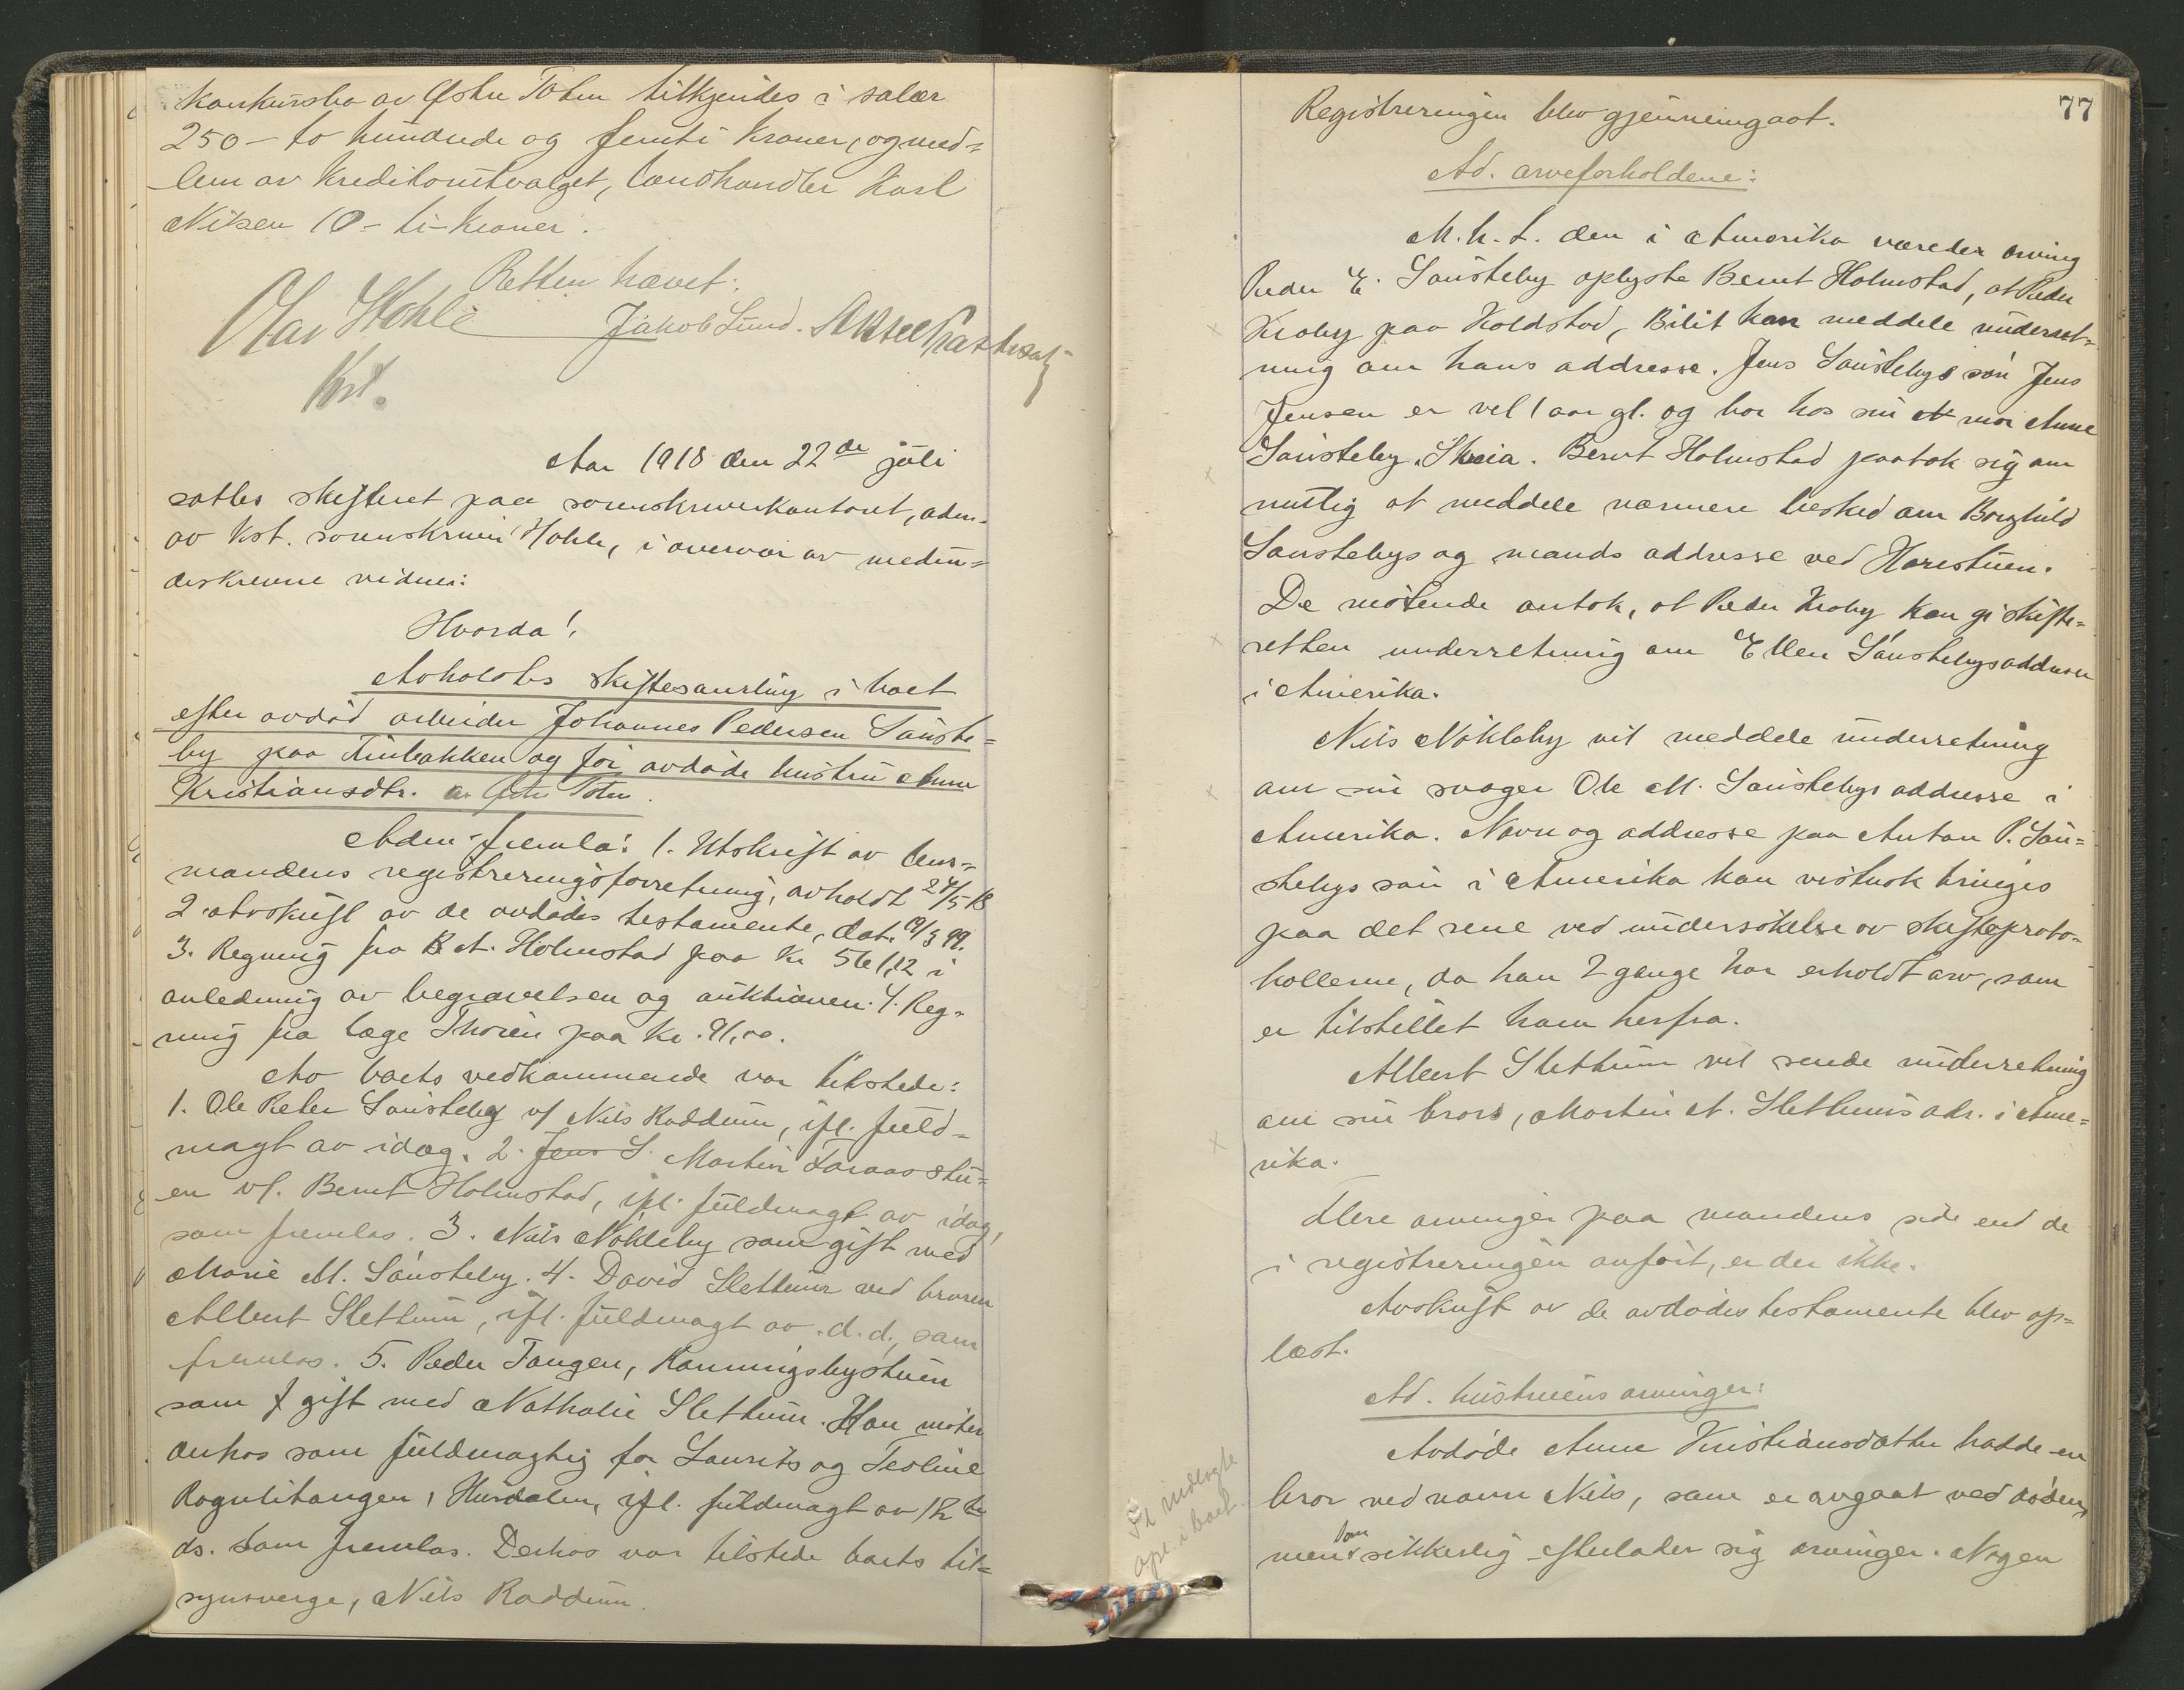 konkursbo av Østre Toten tilkjendes i salær
250 – to hundrede og femti kroner, og med-
lem av kreditorutvalget, landhandler Karl
Nilsen 10 – ti – kroner.
Retten hævet.
Olav Hohle Jakob Lund. Aksel
Kst.
Aar 1918 den 22de juli
sattes skifteret paa sorenskriverkontoret, adm.
av kst. sorenskriver Hohle, i overvær av medun-
derskrevne vidner:
Hvorda!
Avholdtes skiftesamling i boet
efter avdød arbeider Johannes Pedersen Sønste-
by paa Finbakken og før avdøde hustru Anne
Kristiansdtr. av Østre Toten.
Adm. fremla: 1. Utskrift av lens-
mandens registreringsforretning, avholdt 24/5 18
2. avskrift av de avdødes testamente, dat. 19/3 99.
3. Regning fra B. A. Holmstad paa kr 561,12 i
anledning av begravelsen og auktionen. 4. Reg-
ning fra læge Thorén paa kr. 91,00.
Av boets vedkommende var tilstede:
1. Ole Peter Sønsteby v/ Nils Raddum, ifl. fuld-
magt av idag. 2. Jens S. Martin Faraasstu-
en v/. Bernt Holmstad, ifl. fuldmagt av idag,
som fremlas. 3. Nils Nøkleby som gift med
Marie M. Sønsteby. 4. David Slettum ved broren
Albert Slettum, ifl. fuldmagt av d. d., som
fremlas. 5. Peder Tangen, Rønningsbystuen
som gift med Nathalie Slettum. Han møter
derhos som fuldmægtig for Laurits og Teoline
Rognlitangen, Hurdalen, ifl. fuldmagt av 12te
ds. som fremlas. Derhos var tilstede boets til-
synsverge, Nils Raddum.
77
Registreringen blev gjennemgaat.
Ad. arveforholdene:
M. h. t. den i Amerika værende arving
Peder E. Sønsteby oplyste Bernt Holmstad, at Peder
Kroby paa Koldstad, Bilit kan meddele underret-
ning om hans addresse. Jens Sønstebys søn Jens
Jensen er vel 1 aar gl. og bor hos sin mor Anne
Sønsteby, Skreia. Bernt Holmstad paatok sig om
mulig at meddele nærmere besked om Borghild
Sønstebys og mands addresse ved Harestuen.
De møtende antok, at Peder Kroby kan gi skifte-
retten underretning om Ellen Sønstebys addresse
i Amerika.
Nils Nøkleby vil meddele underretning
om sin svoger Ole M. Sønstebys addresse i
Amerika. Navn og addresse paa Anton P. Søn-
stebys søn i Amerika kan vistnok bringes
paa det rene ved undersøkelse av skifteproto-
kollerne, da han 2 gange har erholdt arv, som
er tilstillet ham herfra.
Albert Slettum vil sende underretning
om sin brors, Martin A. Slettums adr. i Ame-
rika.
Flere arvinger paa mandens side end de
i registreringen anført, er der ikke.
Avskrift av de avdødes testamente blev op-
læst.
Ad. hustruens arvinger:
Avdøde Anne Kristiansdatter hadde en
bror ved navn Nils, som er avgaat ved døden,
men som sikkerlig efterlader sig arvinger. Nogen
i boet.